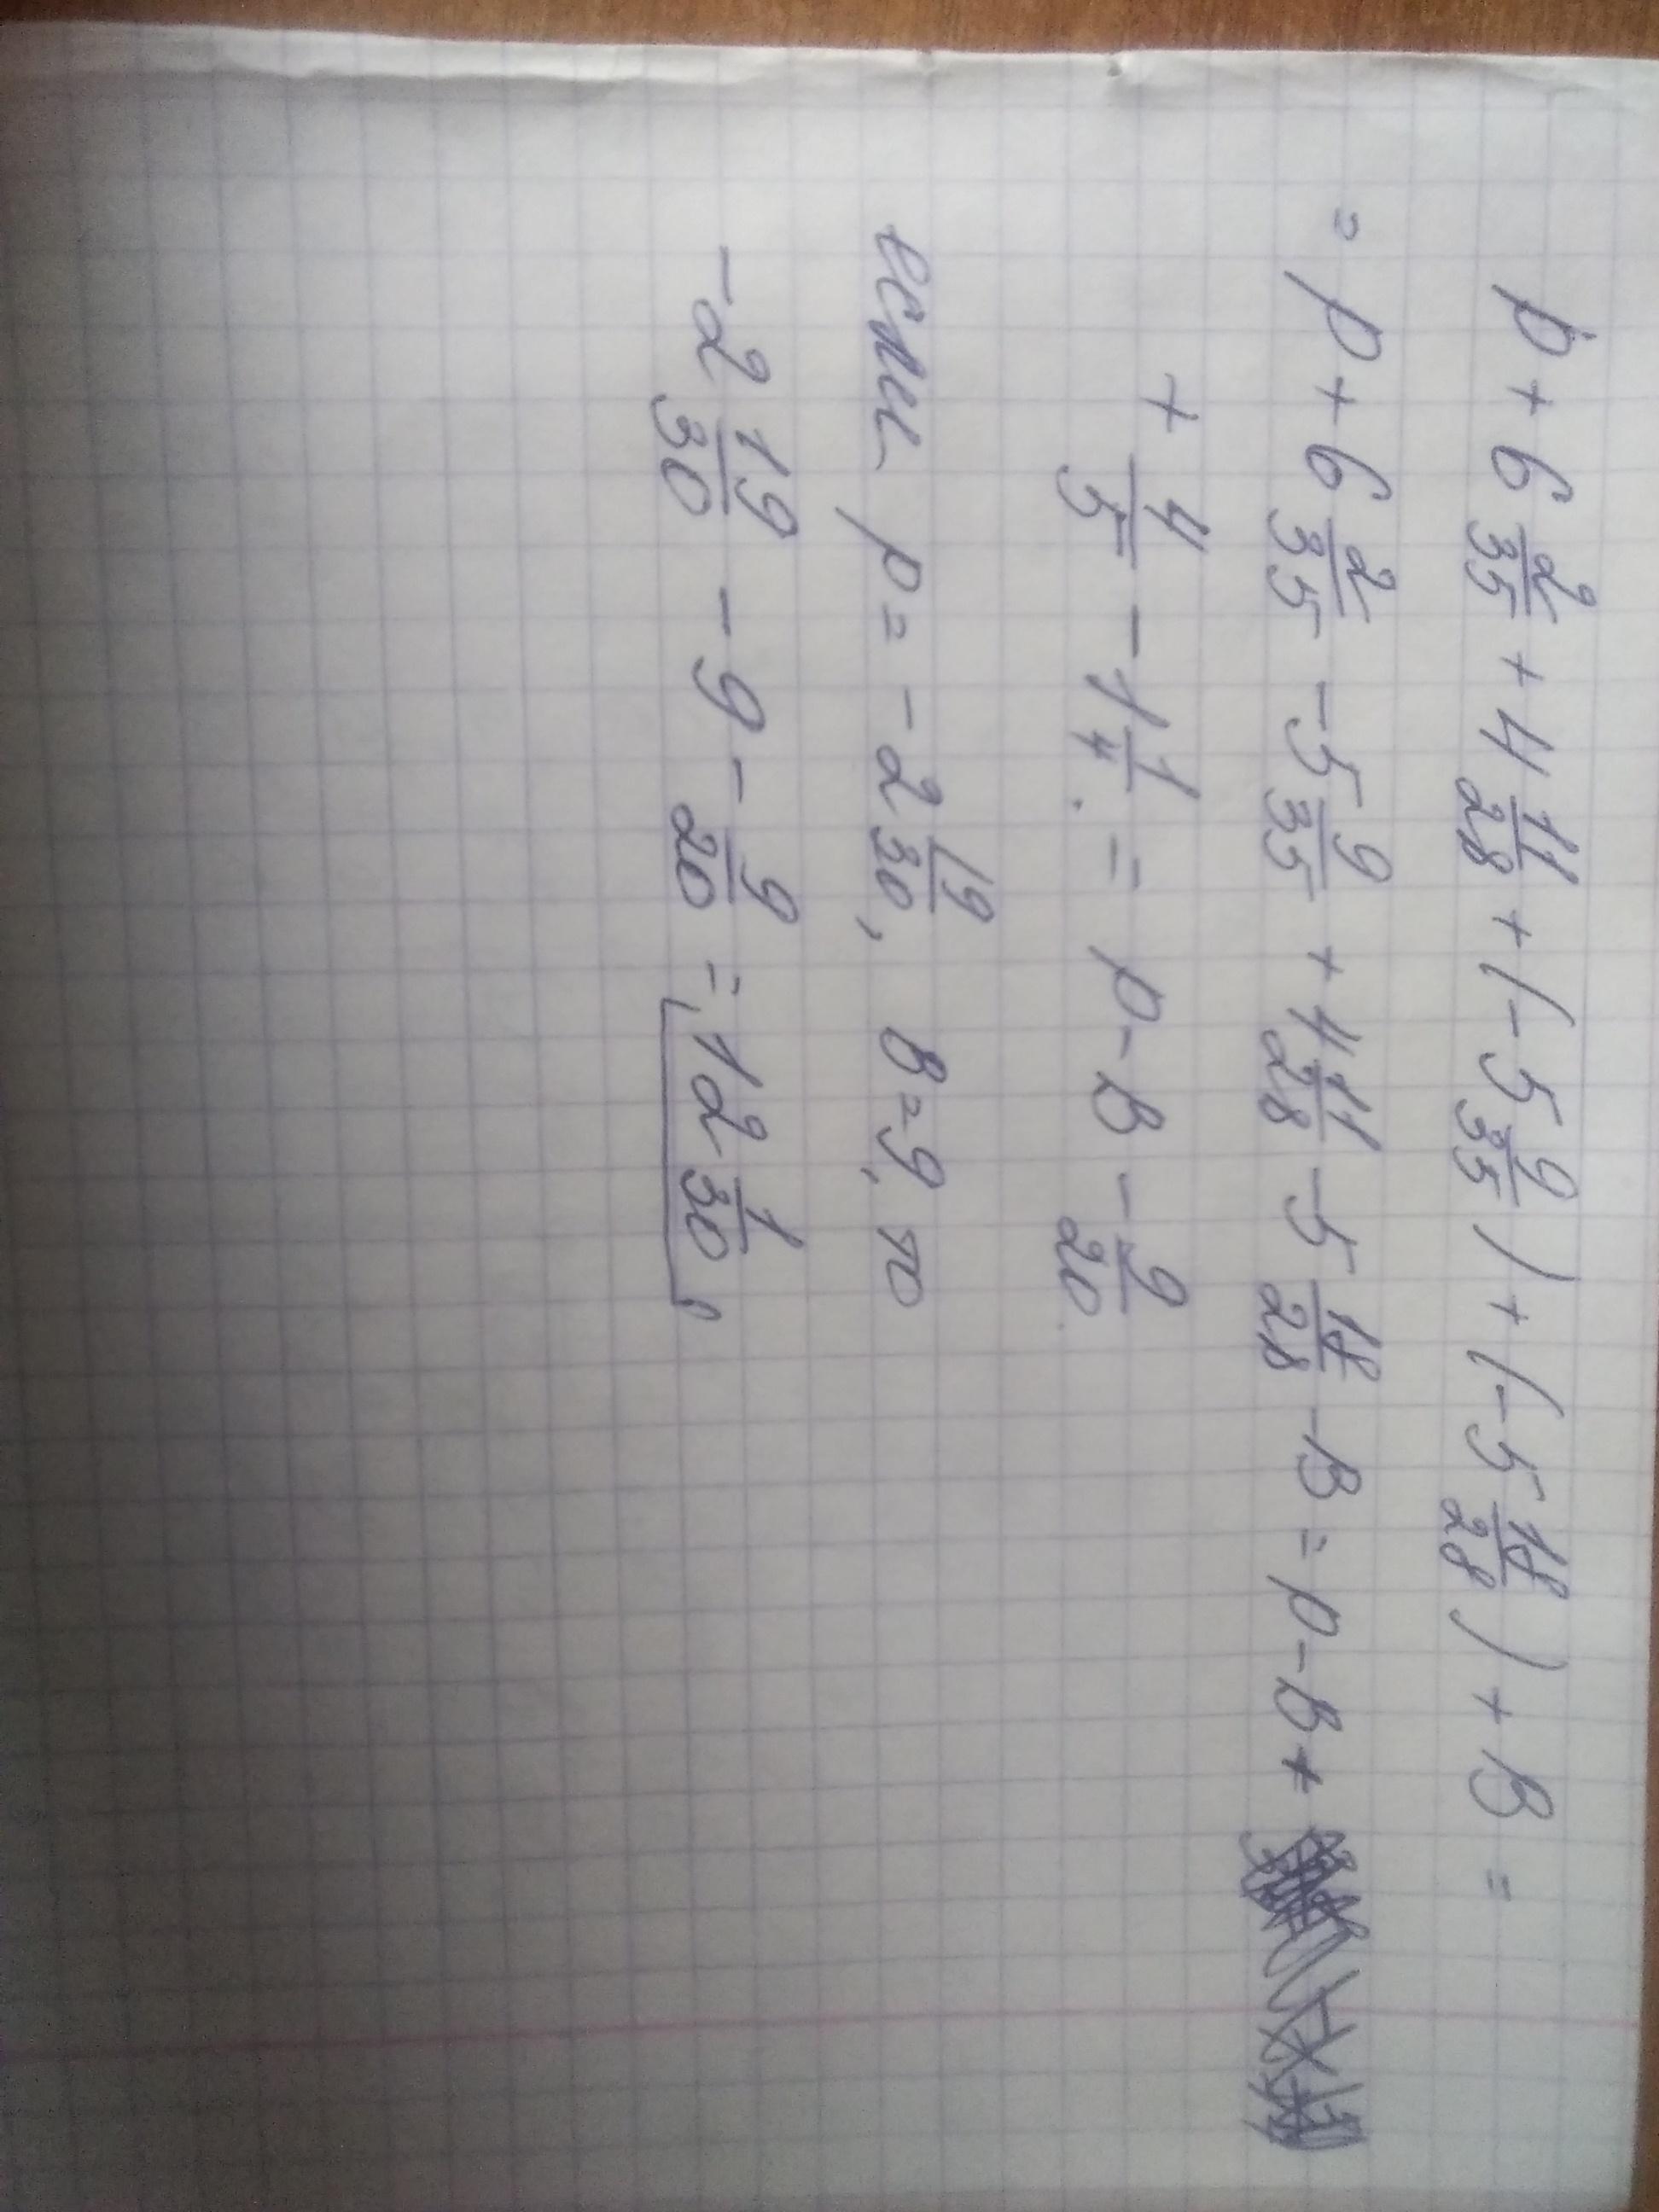 p + 6 2/35 + 4 11/28 + (-5 9/35) + (-5 18/28) + B =
= p + 6 2/35 - 5 9/35 + 4 11/28 - 5 18/28 - B = p - B +
+ 4/5 - 1 1/4 = p - B - 9/20
если p = -2 19/30, B = 9, то
-2 19/30 - 9 - 9/20 = -12 1/30